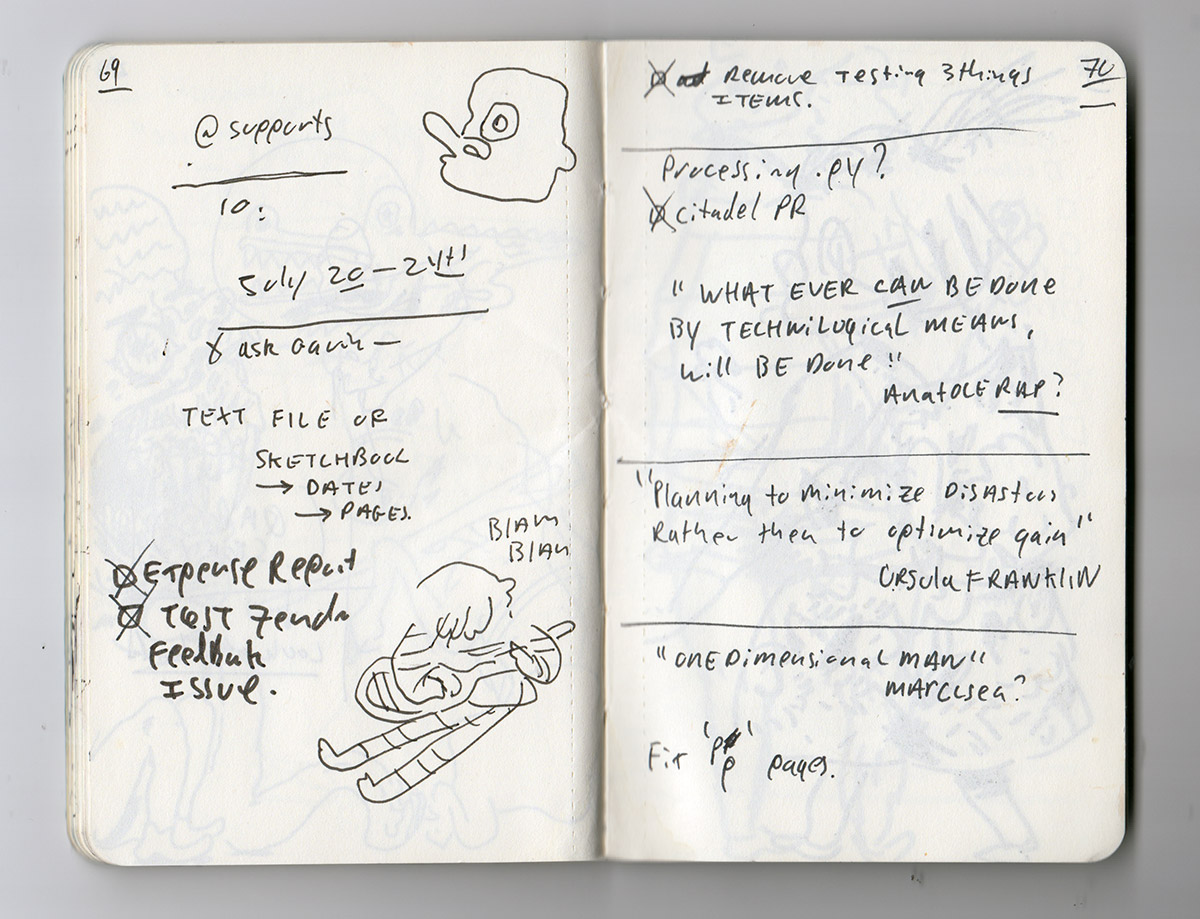 69
@ supports
10:
July 20 – 24th
ask Gavin —
TEXT FILE OF
SKETCHBOOK
→ DATES
→ PAGES.
BLAM
BLAM
Expense Report
TEST Zenda
Feedback
ISSUE.
70
Remove Testing 3things
ITEMS.
Processing.py?
citadel PR
"WHAT EVER CAN BE DONE
BY TECHNILOGICAL MEANS,
will BE DONE"
ANATOLE RAP?
"Planning to minimize DISASTERS
Rather then to optimize gain"
URSULA FRANKLIN
"ONE Dimensional MAN"
MARCUSEA?
Fix 'p'
p pages.